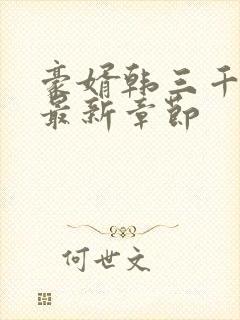 豪婿韩三千
最新章节
何世文